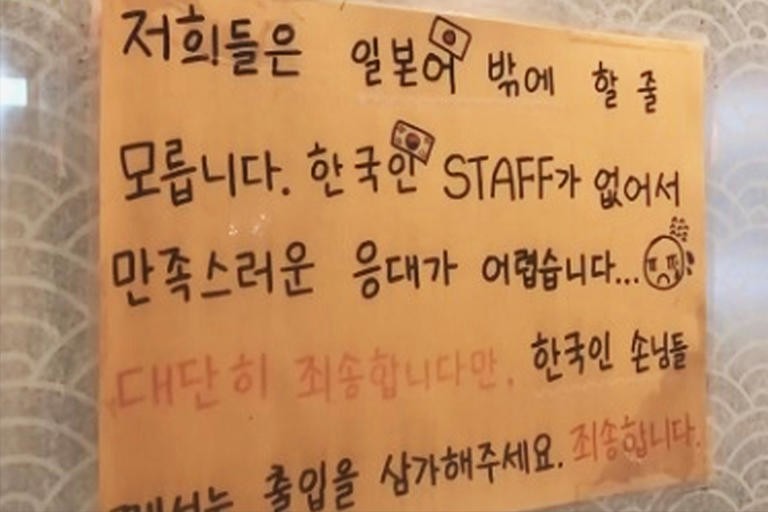 저희들은 일본어 밖에 할 줄
모릅니다. 한국인 STAFF가 없어서
만족스러운 응대가 어렵습니다...
대단히 죄송합니다만, 한국인 손님들
께서는 출입을 삼가해주세요. 죄송합니다.